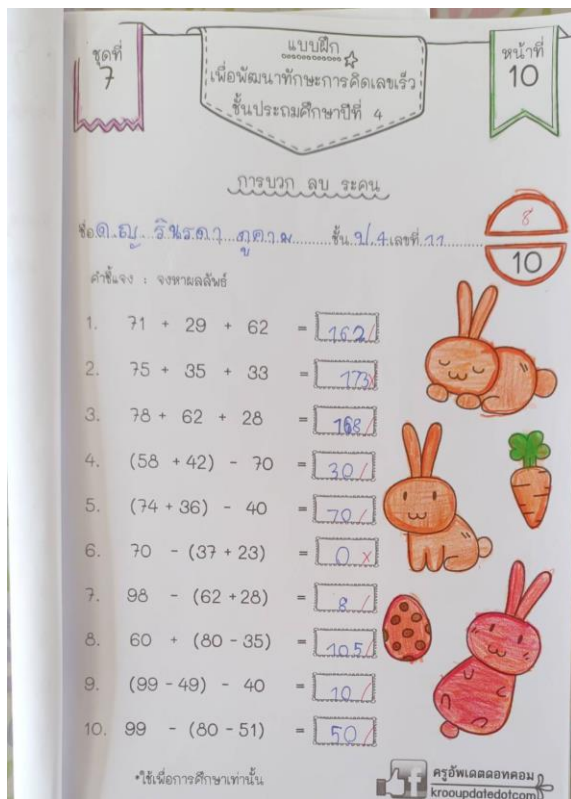 ชุดที่
7
แบบฝึก
เพื่อพัฒนาทักษะการคิดเลขเร็ว
ชั้นประถมศึกษาปีที่ 4
หน้าที่
10
การบวก ลบ ระคน
8
10
ชื่อ ด.ญ. รินรดา ภูคาม ชั้น ป.4 เลขที่ 11
คำชี้แจง : จงหาผลลัพธ์
1. 71 + 29 + 62 = 162 /
2. 75 + 35 + 33 = 173 x
3. 78 + 62 + 28 = 168 /
4. (58 + 42) - 70 = 30 /
5. (74 + 36) - 40 = 70 /
6. 70 - (37 + 23) = 0 x
7. 98 - (62 + 28) = 8 /
8. 60 + (80 - 35) = 105 /
9. (99 - 49) - 40 = 10 /
10. 99 - (80 - 51) = 50 /
*ใช้เพื่อการศึกษาเท่านั้น
f
ครูอัพเดตดอทคอม
krooupdatedotcom